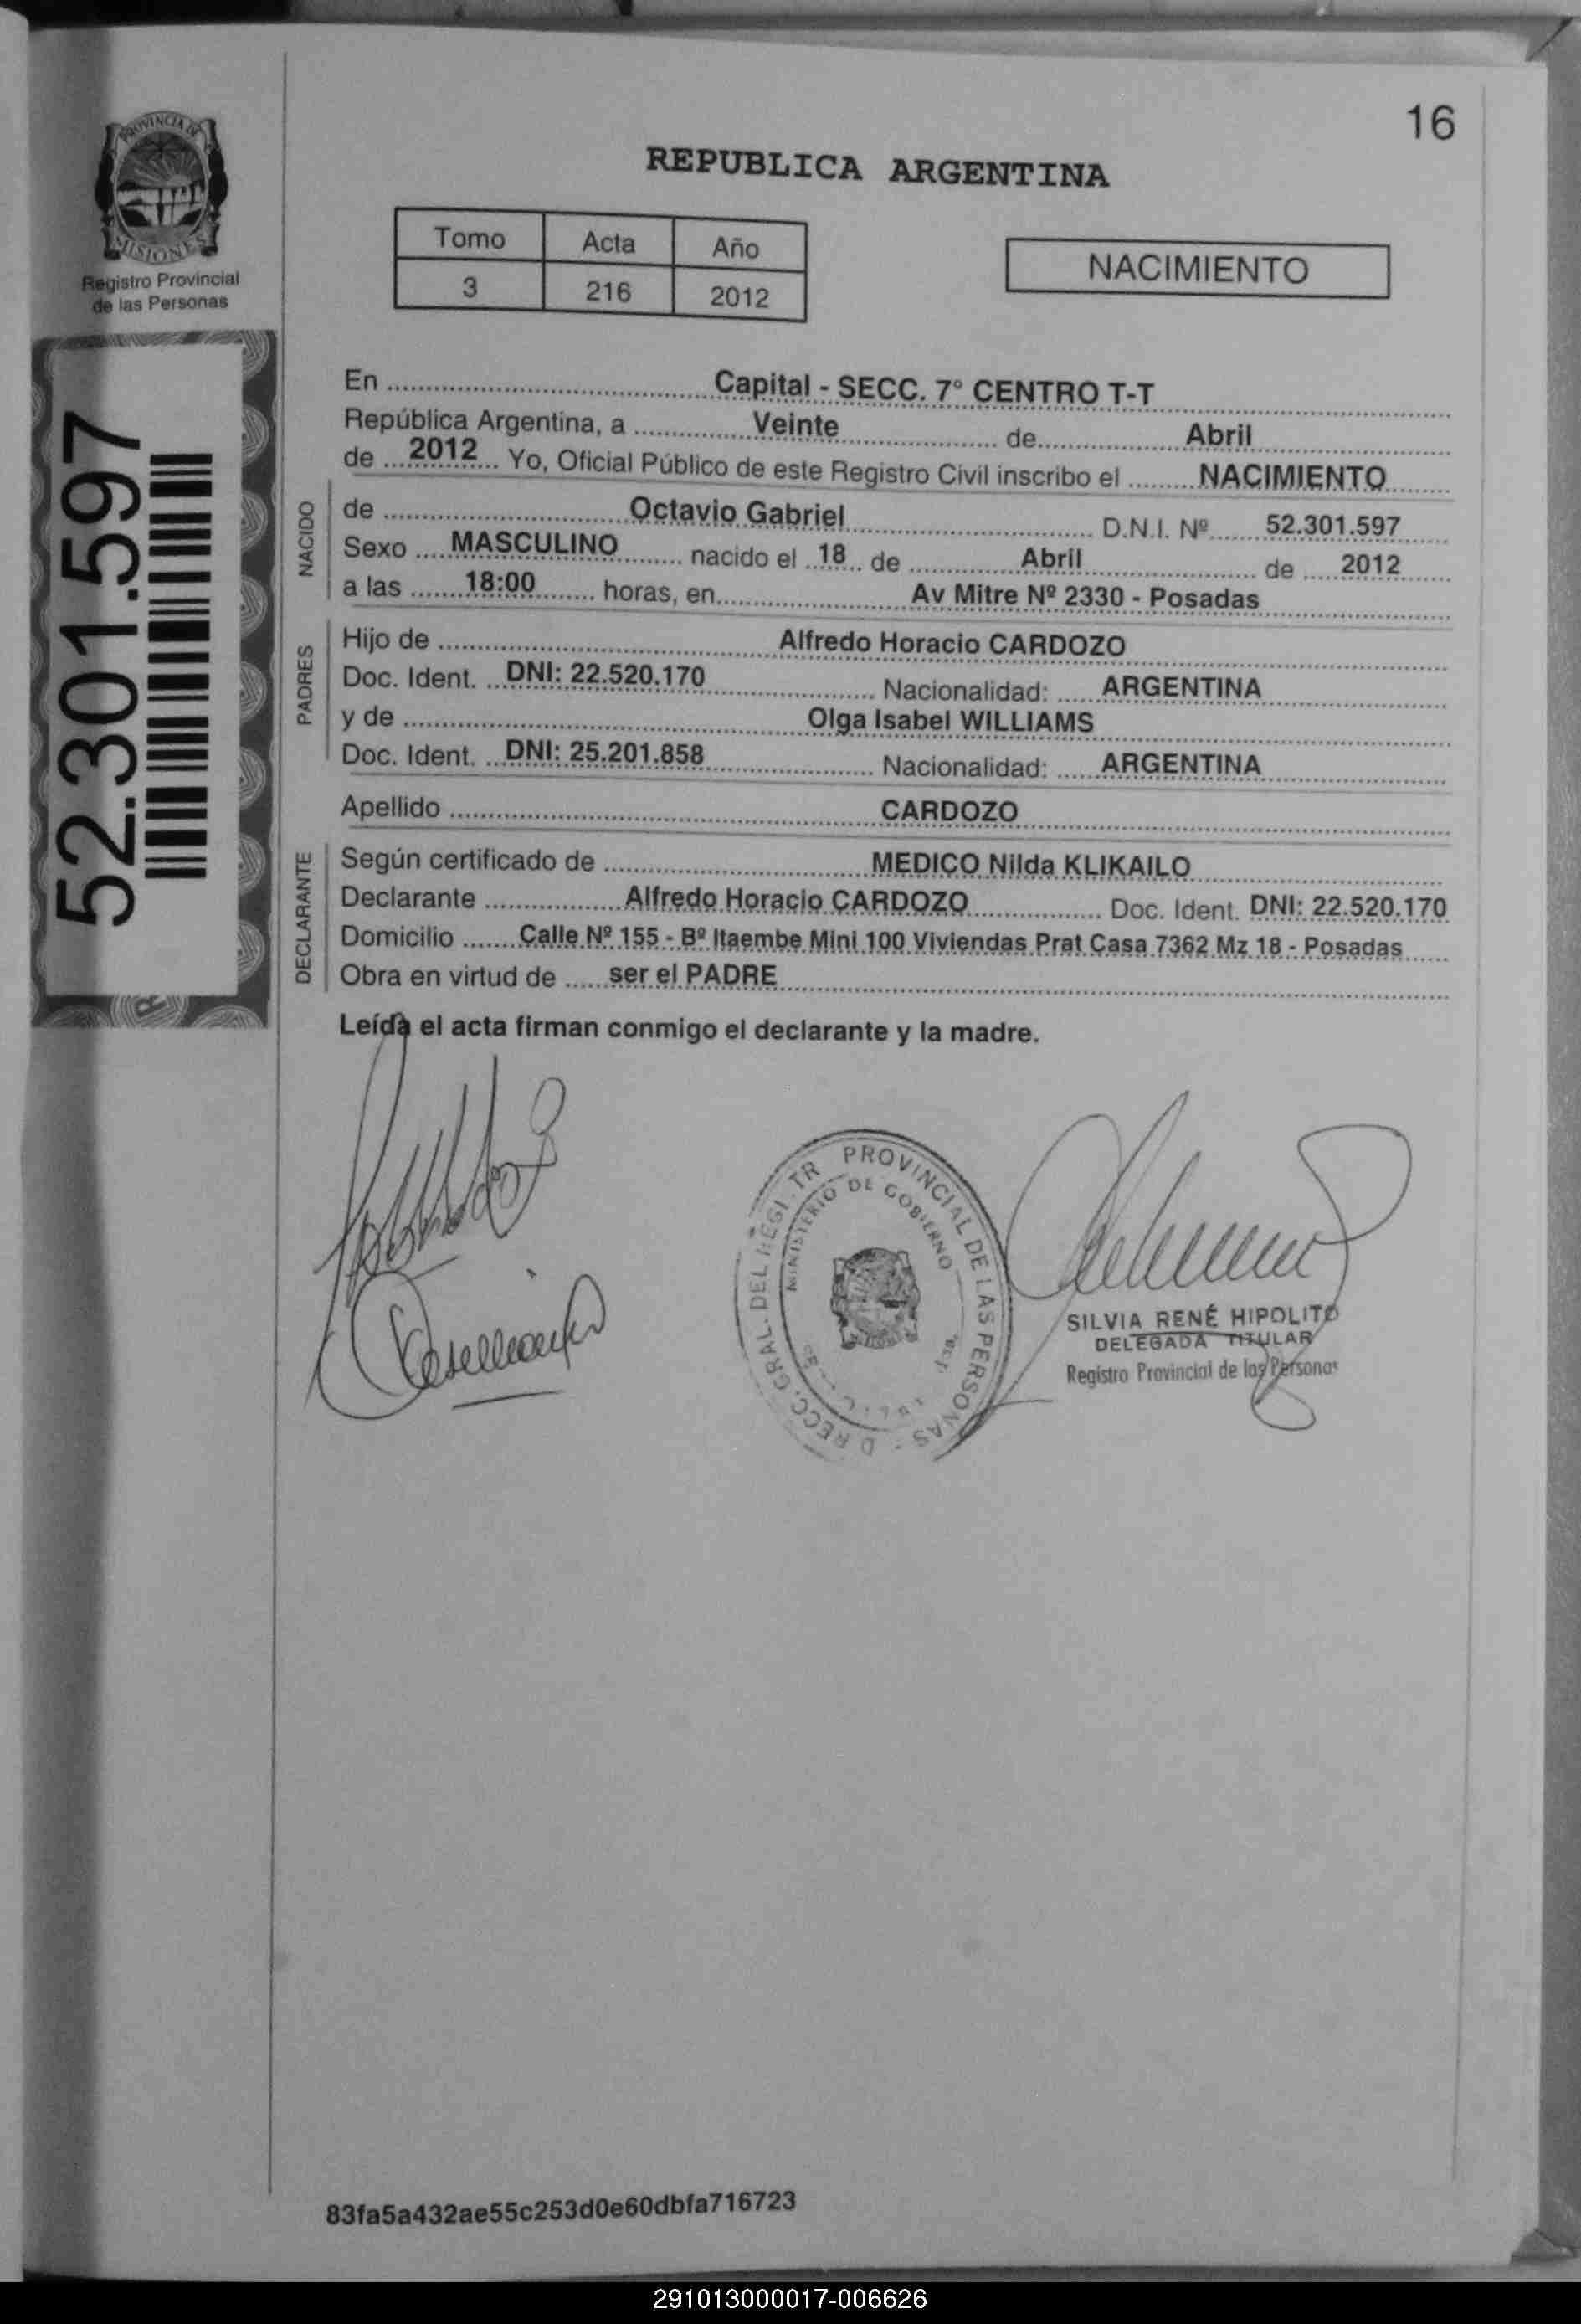 16
PROVINCIA DE
MISIONES
Registro Provincial
de las Personas
52.301.597
REPUBLICA ARGENTINA
Tomo Acta Año
3 216 2012
NACIMIENTO
En Capital - SECC. 7º CENTRO T-T
República Argentina, a Veinte de Abril
de 2012 Yo, Oficial Público de este Registro Civil inscribo el NACIMIENTO
NACIDO
de Octavio Gabriel D.N.I. Nº 52.301.597
Sexo MASCULINO nacido el 18 de Abril de 2012
a las 18:00 horas, en Av Mitre Nº 2330 - Posadas
PADRES
Hijo de Alfredo Horacio CARDOZO
Doc. Ident. DNI: 22.520.170 Nacionalidad: ARGENTINA
y de Olga Isabel WILLIAMS
Doc. Ident. DNI: 25.201.858 Nacionalidad: ARGENTINA
Apellido CARDOZO
DECLARANTE
Según certificado de MEDICO Nilda KLIKAILO
Declarante Alfredo Horacio CARDOZO Doc. Ident. DNI: 22.520.170
Domicilio Calle Nº 155 - Bº Itaembe Mini 100 Viviendas Prat Casa 7362 Mz 18 - Posadas
Obra en virtud de ser el PADRE
Leída el acta firman conmigo el declarante y la madre.
PROVINCIAL DE LAS PERSONAS
MINISTERIO DE GOBIERNO
SILVIA RENÉ HIPOLITO
DELEGADA TITULAR
Registro Provincial de las Personas
83fa5a432ae55c253d0e60dbfa716723
291013000017-006626